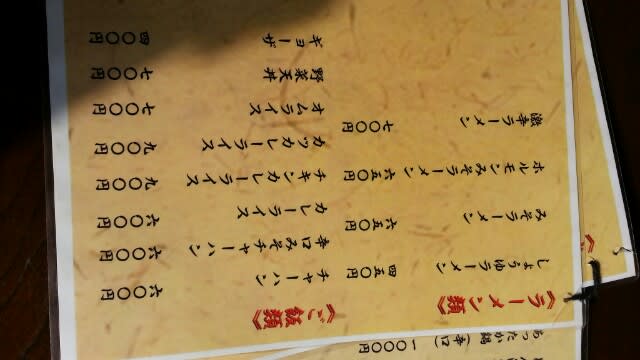 《ラーメン類》
しょうゆラーメン 四五〇円
みそラーメン 六五〇円
ホルモンみそラーメン 六五〇円
激辛ラーメン 七〇〇円
《ご飯類》
チャーハン 六〇〇円
辛口みそチャーハン 六〇〇円
カレーライス 六〇〇円
チキンカレーライス 九〇〇円
カツカレーライス 九〇〇円
オムライス 七〇〇円
野菜天丼 七〇〇円
ギョーザ 四〇〇円
あったか鍋(辛口) 一〇〇〇円